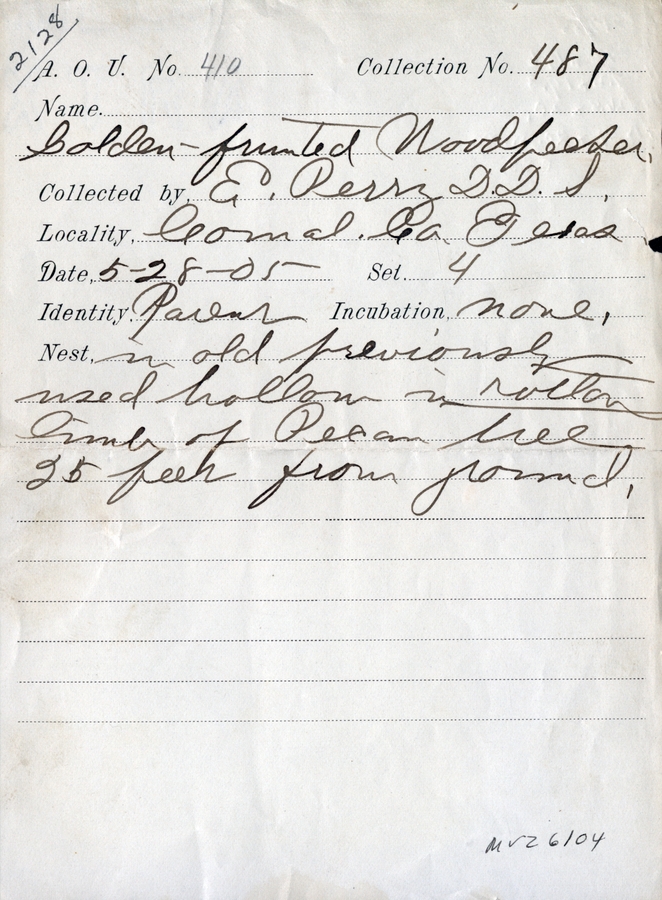 2128
A. O. U. No. 410 Collection No. 487
Name.
Golden-frunted Woodpecker,
Collected by, E. Perry D.D.S,
Locality, Comal. Co. Texas
Date, 5-28-05 Set. 4
Identity, Parent Incubation, none,
Nest, in old previously
used hollow in rotten
limb of Pecan tree
25 feet from ground,
MVZ 6104